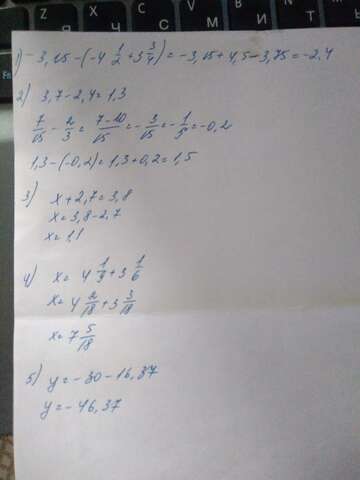 1) -3,15-(-4 1/2+3 3/4)=-3,15+4,5-3,75=-2,4
2) 3,7-2,4=1,3
7/15-2/3=7-10/15=-3/15=-1/5=-0,2
1,3-(-0,2)=1,3+0,2=1,5
3)
x+2,7=3,8
x=3,8-2,7
x=1,1
4) x=4 1/9+3 1/6
x=4 2/18+3 3/18
x=7 5/18
5) y=-30-16,37
y=-46,37